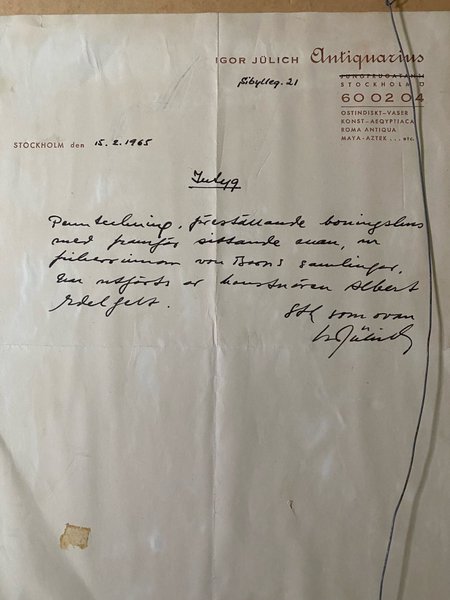 IGOR JÜLICH Antiquarius
JUNGFRUGATAN
Sibylleg. 21
STOCKHOLM Ö
60 02 04
OSTINDISKT-VASER
KONST-AEGYPTIACA
ROMA ANTIQUA
MAYA-AZTEK ... etc.
STOCKHOLM den 15.2.1965
Intyg
Pennteckning, föreställande boningshus
med framför sittande man, ur
friherrinnan von samlingar,
har utförts av konstnären Albert
Edelfelt.
Sthlm som ovan
Jülich